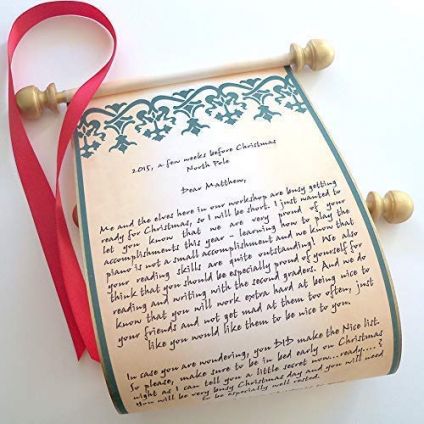 2015, a few weeks before Christmas
North Pole
Dear Matthew,
Me and the elves here in our workshop are busy getting
ready for Christmas, so I will be short. I just wanted to
let you know that we are very proud of your
accomplishments this year - learning how to play the
piano is not a small accomplishment and we know that
your reading skills are quite outstanding! We also
think that you should be especially proud of yourself for
reading and writing with the second graders. And we do
know that you will work extra hard at being nice to
your friends and not get mad at them too often, just
like you would like them to be nice to you.
In case you are wondering, you DID make the Nice list.
So please, make sure to be in bed early on Christmas
night as I can tell you a little secret now...ready....?
You will be very busy Christmas day and you will need
to be especially well rested.